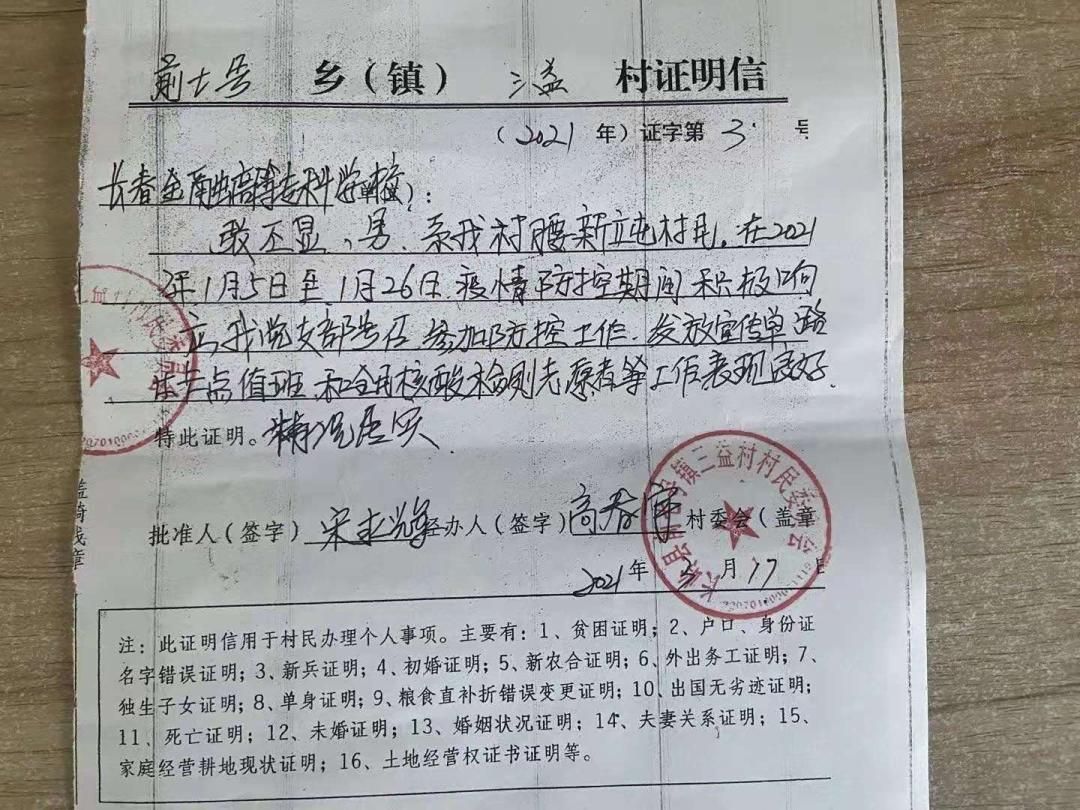 前七号 乡（镇） 三益 村证明信
（2021 年）证字第 3 号
长春金融高等专科学校）：
敢不显、男、系我村腰新立屯村民，在2021
年1月5日至1月26日疫情防控期间积极响
应我党支部号召参加防控工作、发放宣传单、路
卡点值班和全员核酸检测志愿者等工作表现良好
特此证明。情况属实
批准人（签字） 宋 经办人（签字）高春 村委会（盖章
2021 年 月 17 日
三益村村民委员会
盖骑线章
注：此证明信用于村民办理个人事项。主要有：1、贫困证明；2、户口、身份证
名字错误证明；3、新兵证明；4、初婚证明；5、新农合证明；6、外出务工证明；7、
独生子女证明；8、单身证明；9、粮食直补折错误变更证明；10、出国无劣迹证明；
11、死亡证明；12、未婚证明；13、婚姻状况证明；14、夫妻关系证明；15、
家庭经营耕地现状证明；16、土地经营权证书证明等。